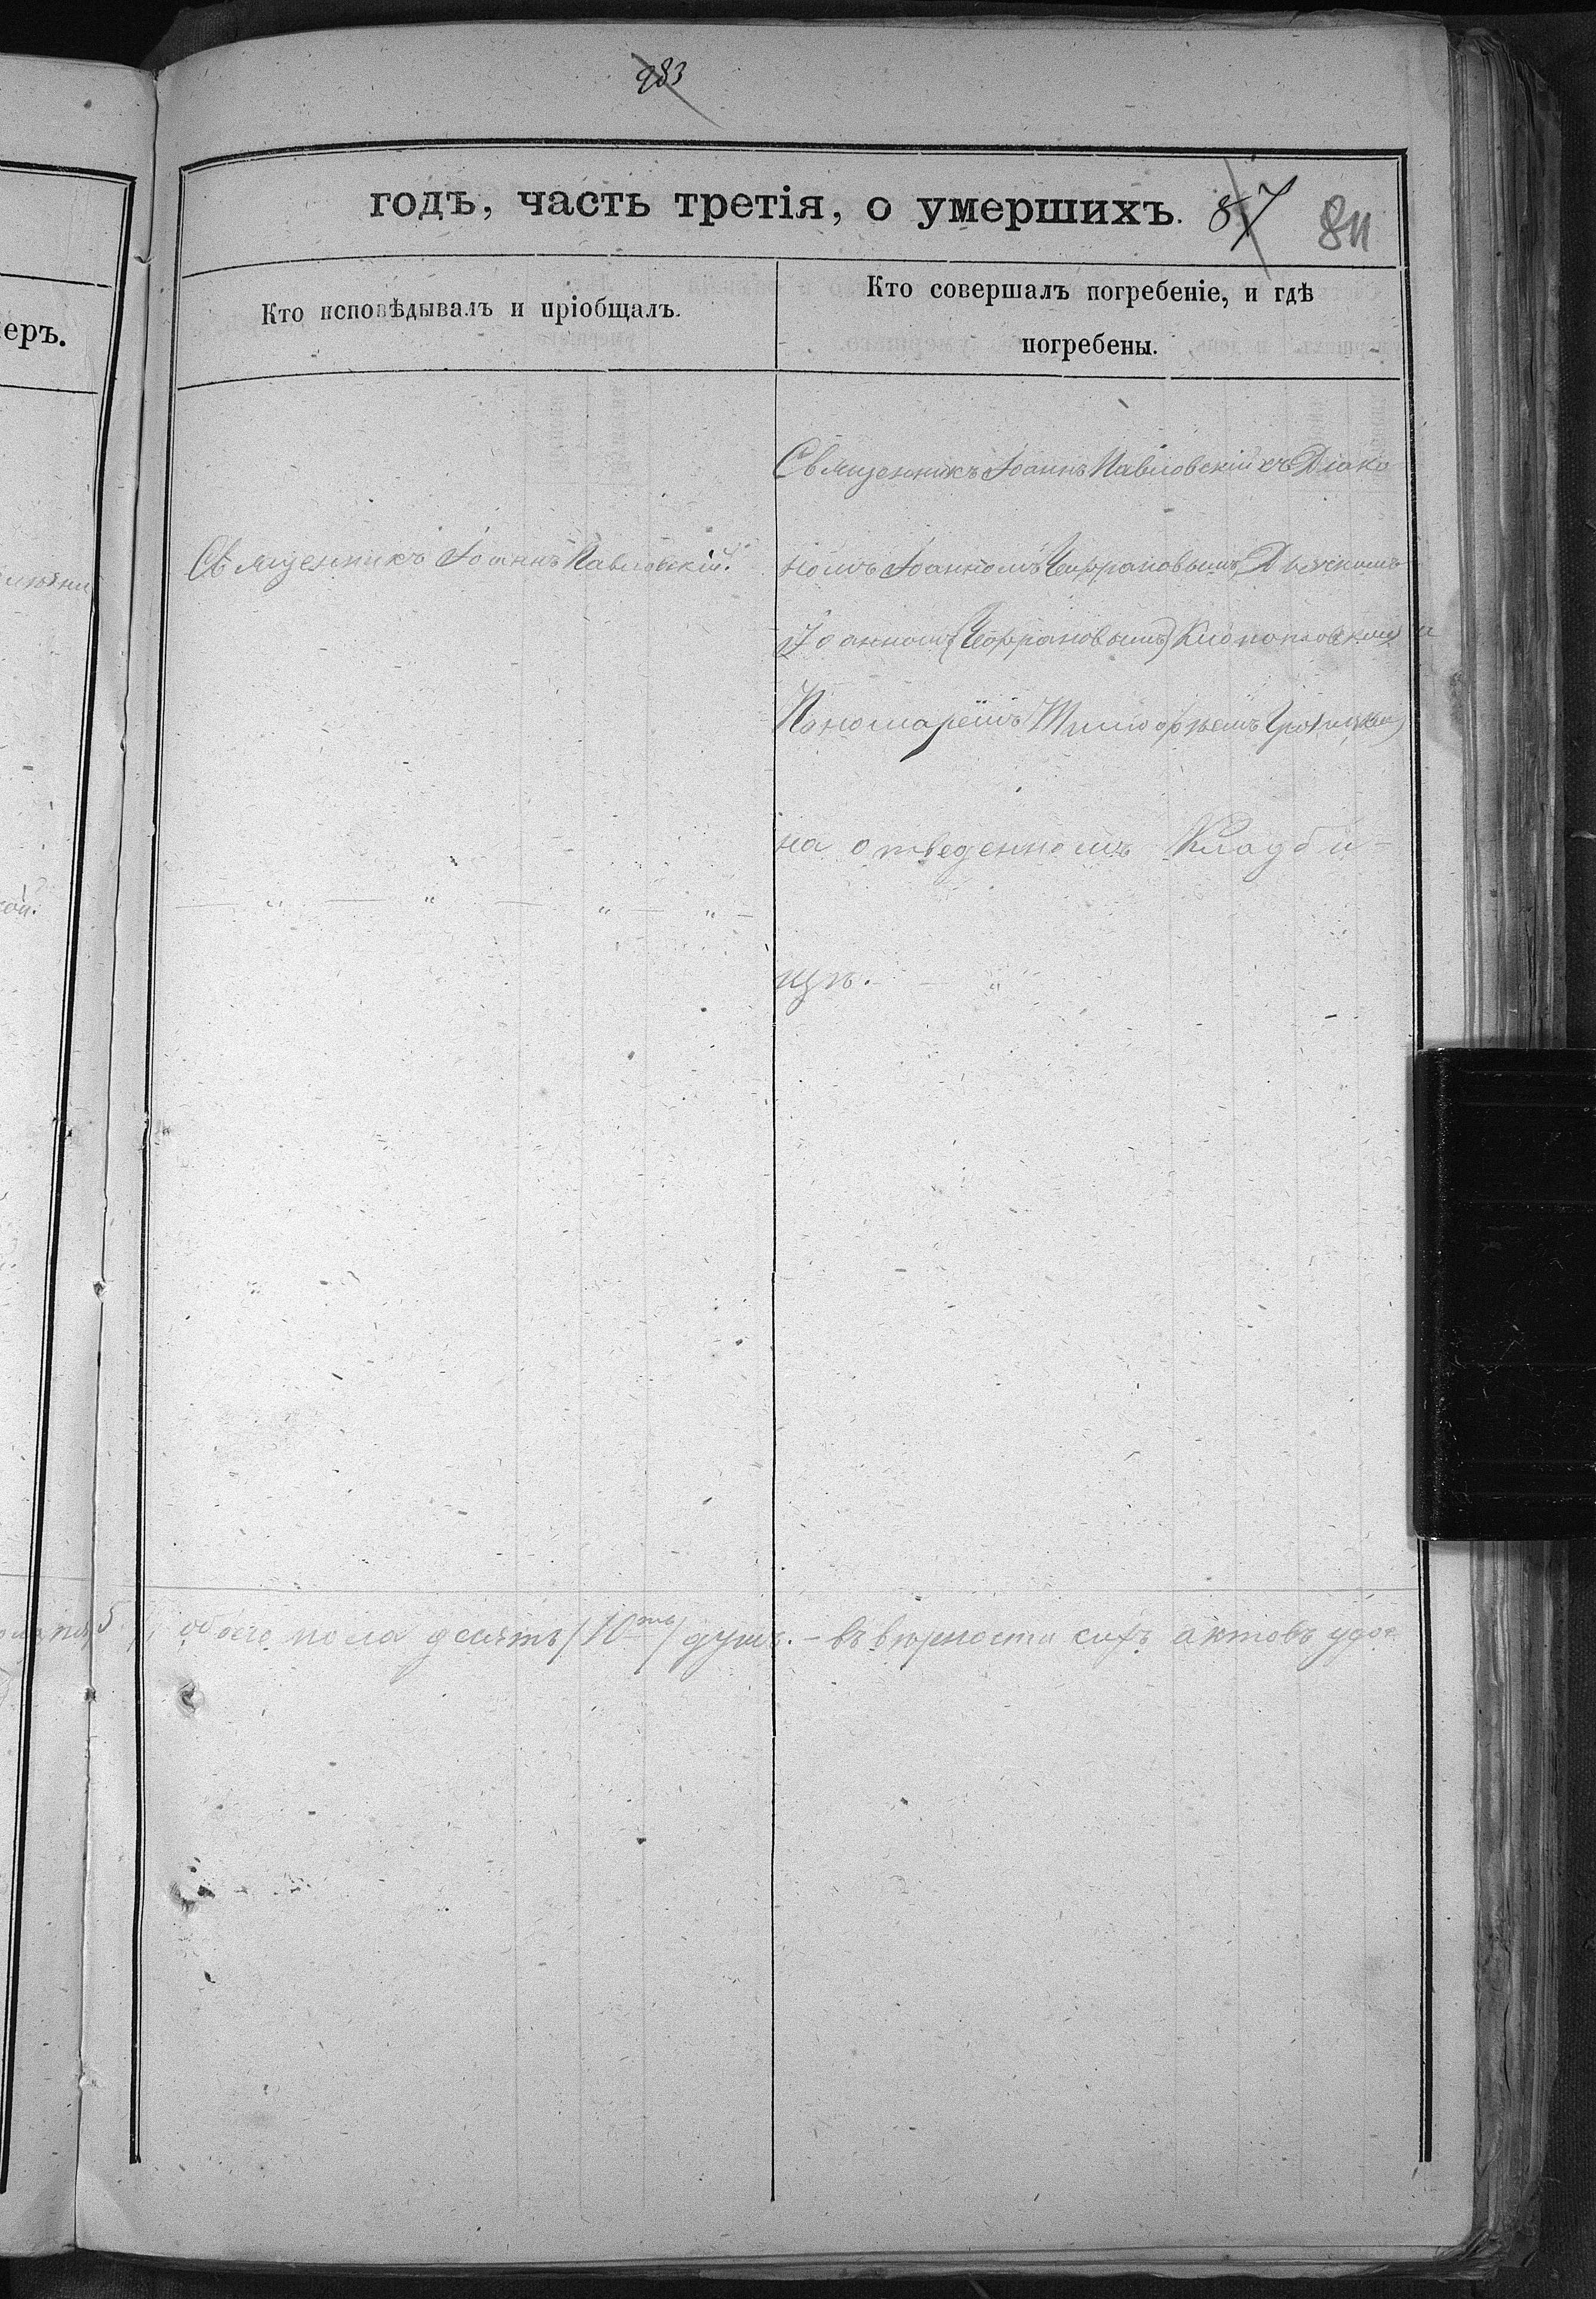 983
годъ, часть третія, о умершихъ. 87 84
Кто исповѣдывалъ и пріобщалъ.
Кто совершалъ погребеніе, и гдѣ
погребены.
еръ.
Священникъ Іоаннъ Павловскій.
Священникъ Іоаннъ Павловскій съ Діако
номъ Іоанномъ Дьячкомъ
Іоанномъ и
Пономарёмъ Тимоѳѣемъ
на отведенномъ Кладби-
щѣ. — "
— " — " — " — " —
обоего пола десять /10ть/ душъ. – въ вѣрности сихъ актовъ удос